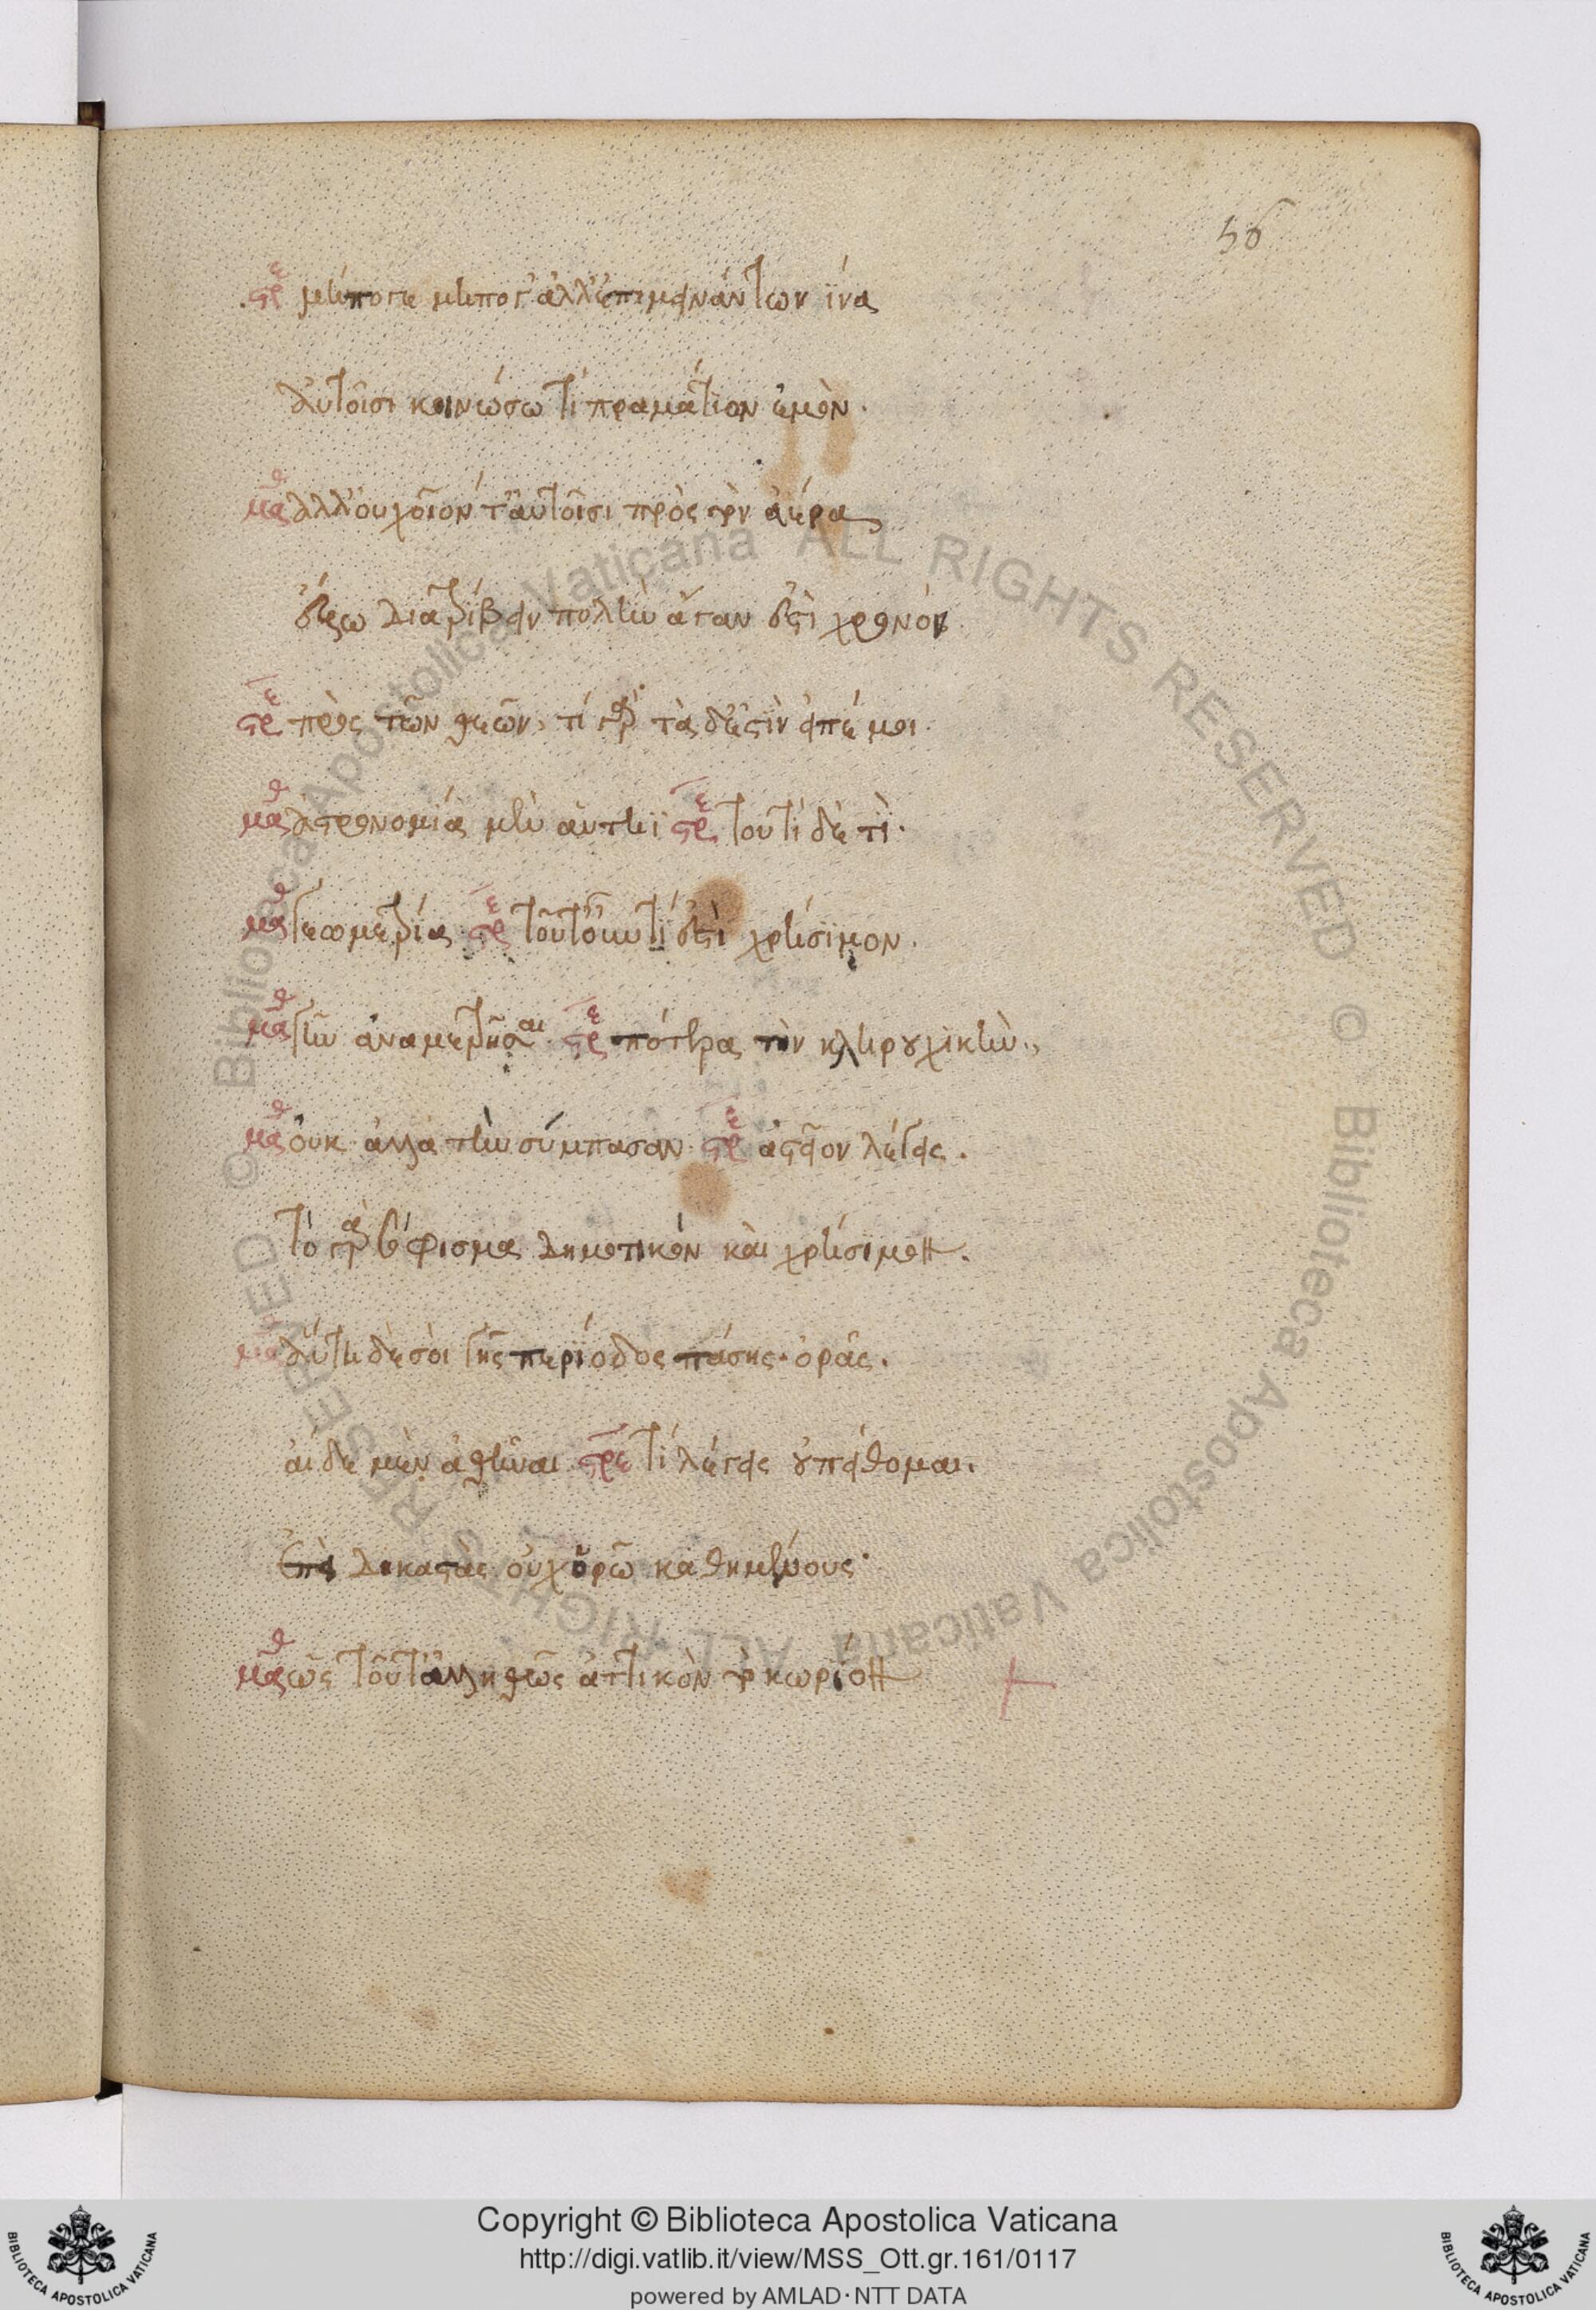 56
στρε μήποτε μήποτ' ἀλλ' ἐπιμεινάντων ἵνα
αὐτοῖσι κοινώσω τί πραμάτιον ἐμὸν.
μαθ ἀλλ' οὐχ οἷον τ' αὐτοῖσι πρὸς τὸν ἀέρα
ἔξω διατρίβειν πολὺν ἄγαν ἐστὶ χρονόν.
στρε πρὸς τῶν θεῶν, τί γὰρ τὰδ' ἐστὶν εἰπέ μοι.
μαθ ἀστρονομία μὲν αὐτηῒ στρε τουτὶ δὲ τὶ.
μαθ γεωμετρία στρε τοῦτ' οὖν τί ἐστὶ χρήσιμον.
μαθ γῆν ἀναμετρῆσαι. στρε πότερα τὴν κληρουχικὴν.,
μαθ οὐκ ἀλλὰ τὴν σύμπασαν. στρε ἀστεῖον λέγεις.
τὸ γὰρ σόφισμα δημοτικόν καὶ χρήσιμον.
μαθ αὕτη δὲ σὸι γῆς περίοδος πάσης. ὁρᾶς.
αἱ δε μὲν ἀθῆναι στρε τί λέγεις οὐ πείθομαι.
ἐπεὶ δικαστὰς οὐχ ὁρῶ καθημένους.
μαθ ὡς τοῦτ' ἀληθῶς ἀττικὸν τὸ χωρίον
Copyright © Biblioteca Apostolica Vaticana
http://digi.vatlib.it/view/MSS_Ott.gr.161/0117
powered by AMLAD·NTT DATA
BIBLIOTECA APOSTOLICA VATICANA
BIBLIOTECA APOSTOLICA VATICANA
© Biblioteca Apostolica Vaticana ALL RIGHTS RESERVED
© Biblioteca Apostolica Vaticana ALL RIGHTS RESERVED